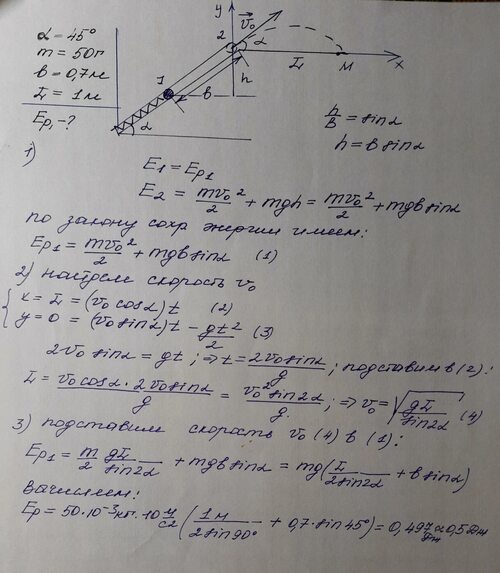 α = 45°
m = 50г
в = 0,7м
L = 1м
Ep₁ - ?
y
2
v₀
α
L
M
x
1
в
h
α
h/в = sinα
h = в sinα
1)
E₁ = Ep₁
E₂ = mv₀²/2 + mgh = mv₀²/2 + mgв sinα
по закону сохр энергии имеем:
Ep₁ = mv₀²/2 + mgв sinα (1)
2) найдем скорость v₀
{ x = L = (v₀ cosα)t (2)
y = 0 = (v₀ sinα)t - gt²/2 (3)
2v₀ sinα = gt; ⇒ t = 2v₀ sinα/g; подставим в (2):
L = v₀ cosα · 2v₀ sinα/g = v₀² sin2α/g; ⇒ v₀ = √(gL/sin2α) (4)
3) подставим скорость v₀ (4) в (1):
Ep₁ = m/2 gL/sin2α + mgв sinα = mg(L/2sin2α + в sinα)
Вычисляем:
Ep = 50·10⁻³кг·10 м/с² (1м/2sin90° + 0,7·sin45°) = 0,497 Дж ≈ 0,5 Дж